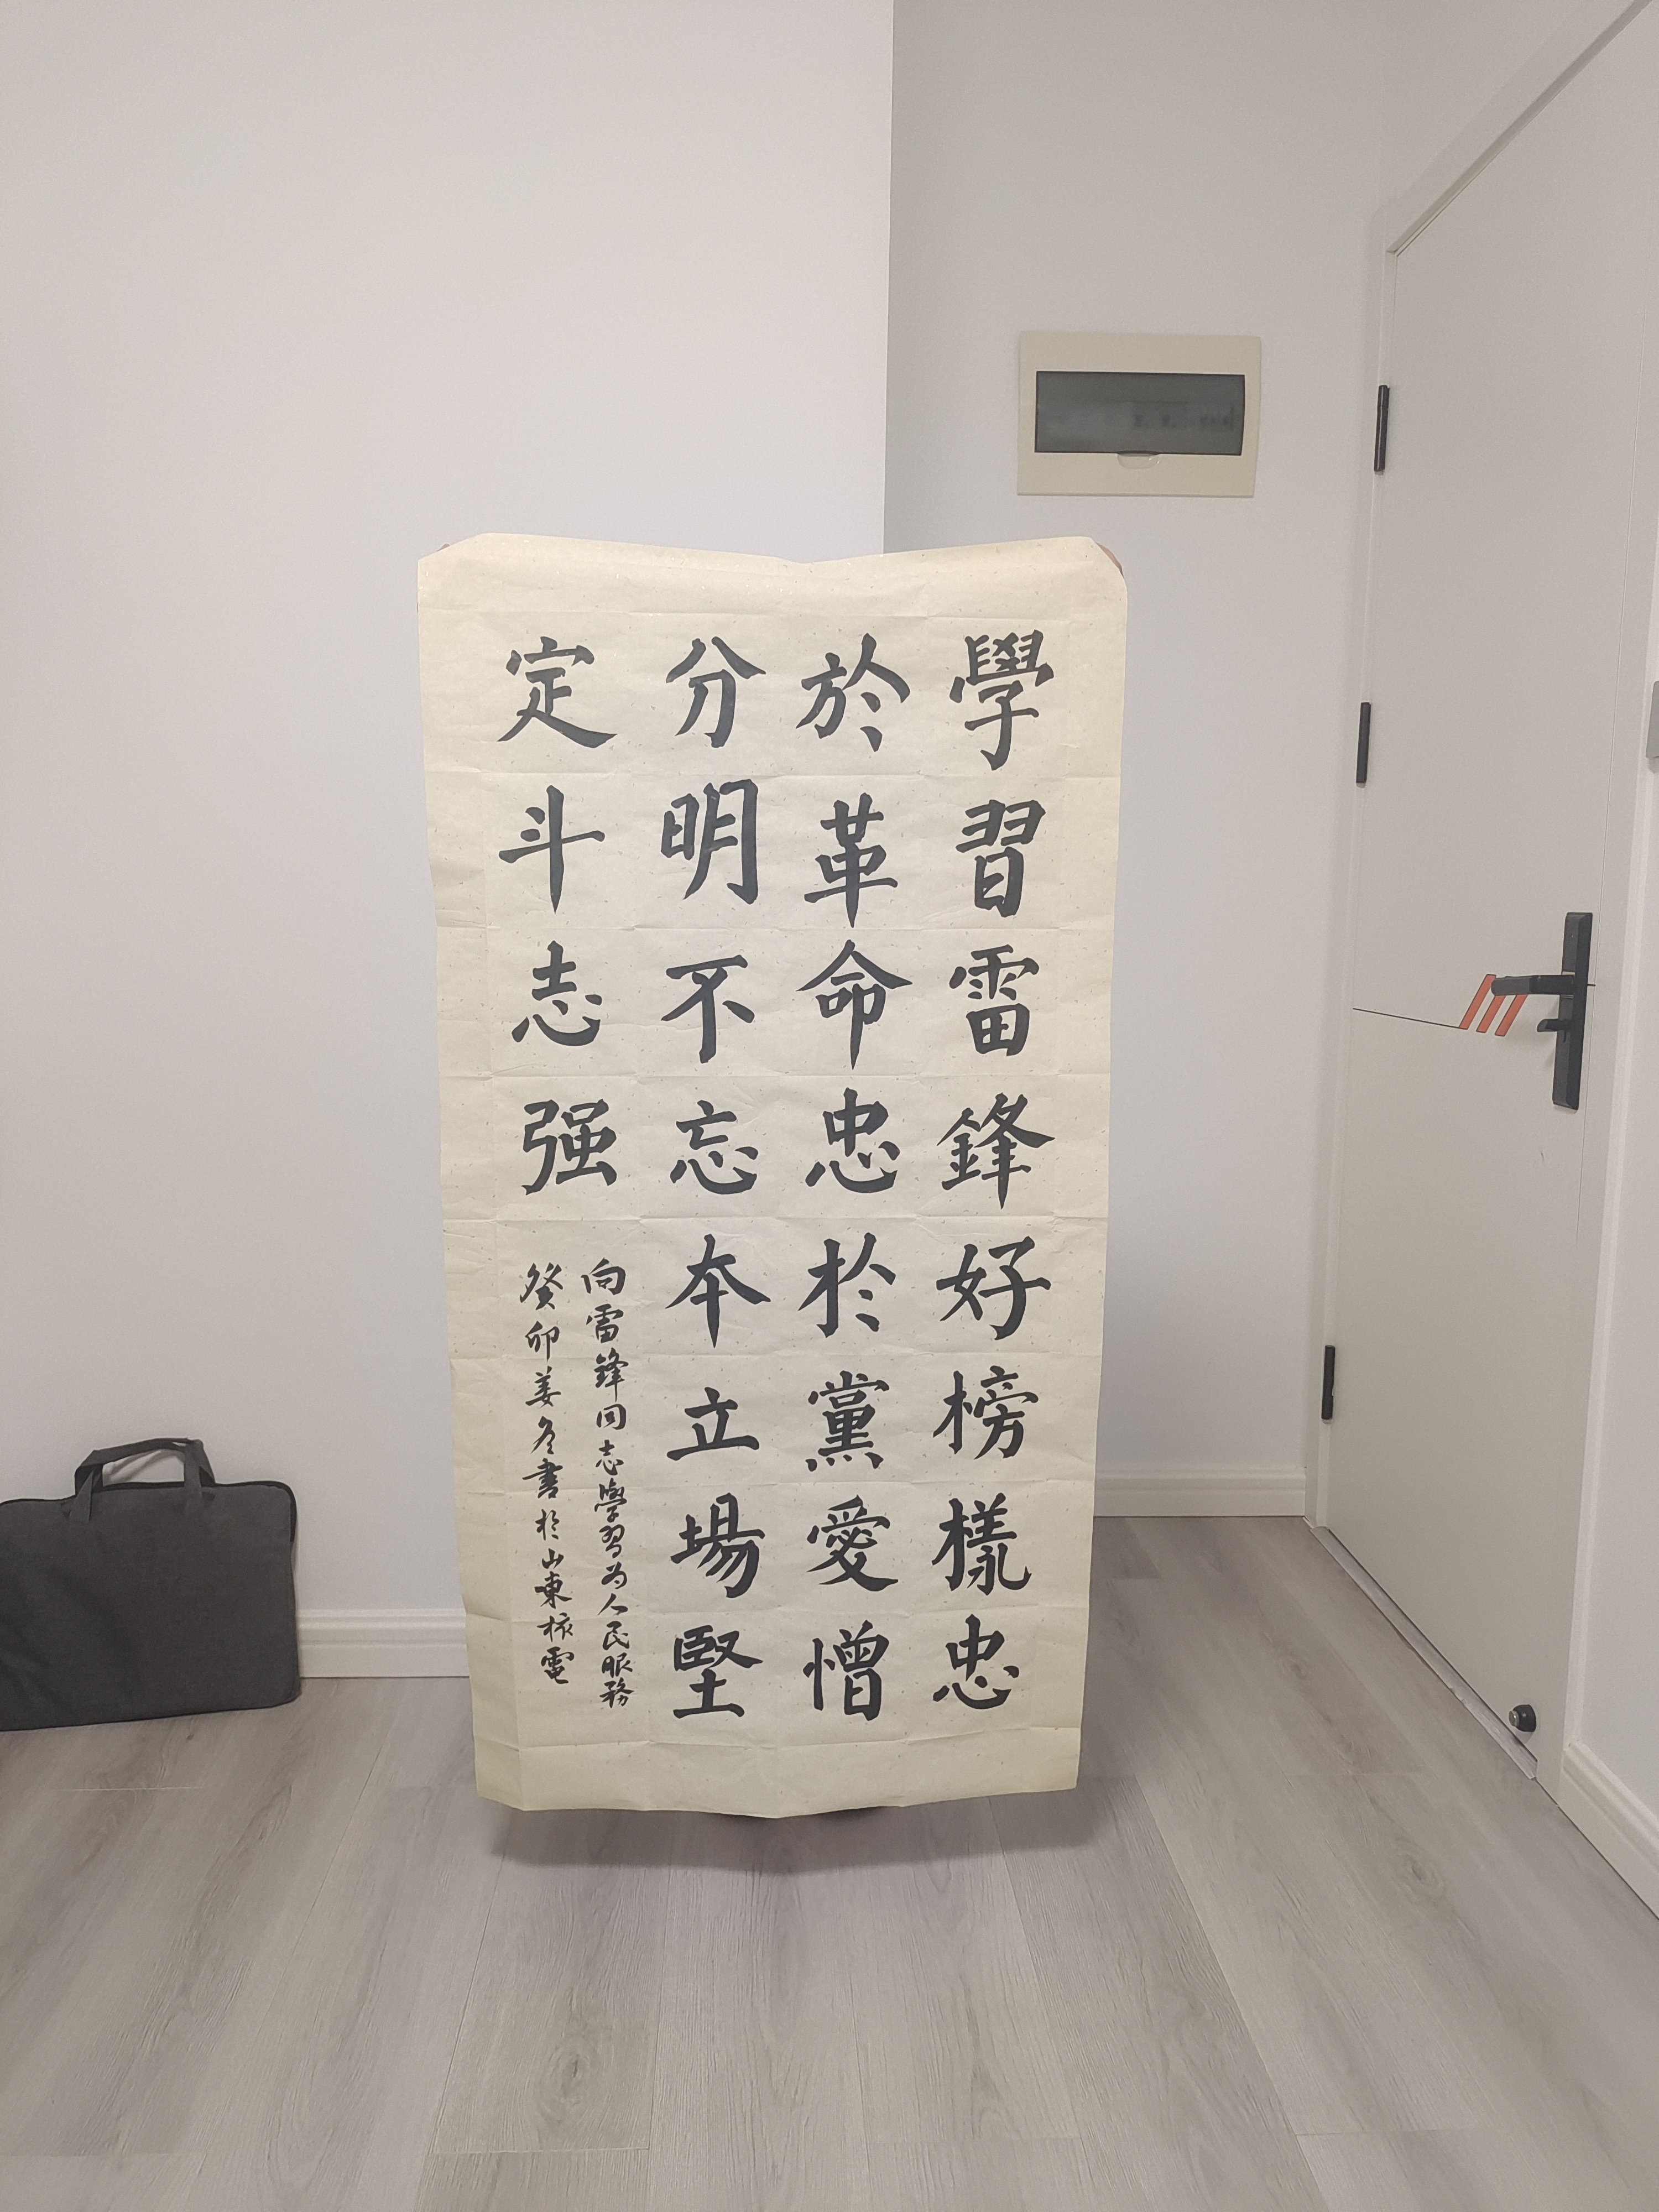 學習雷鋒好榜樣忠
於革命忠於黨愛憎
分明不忘本立場堅
定斗志强
向雷鋒同志學習为人民服務
癸卯姜冬書於山東核電